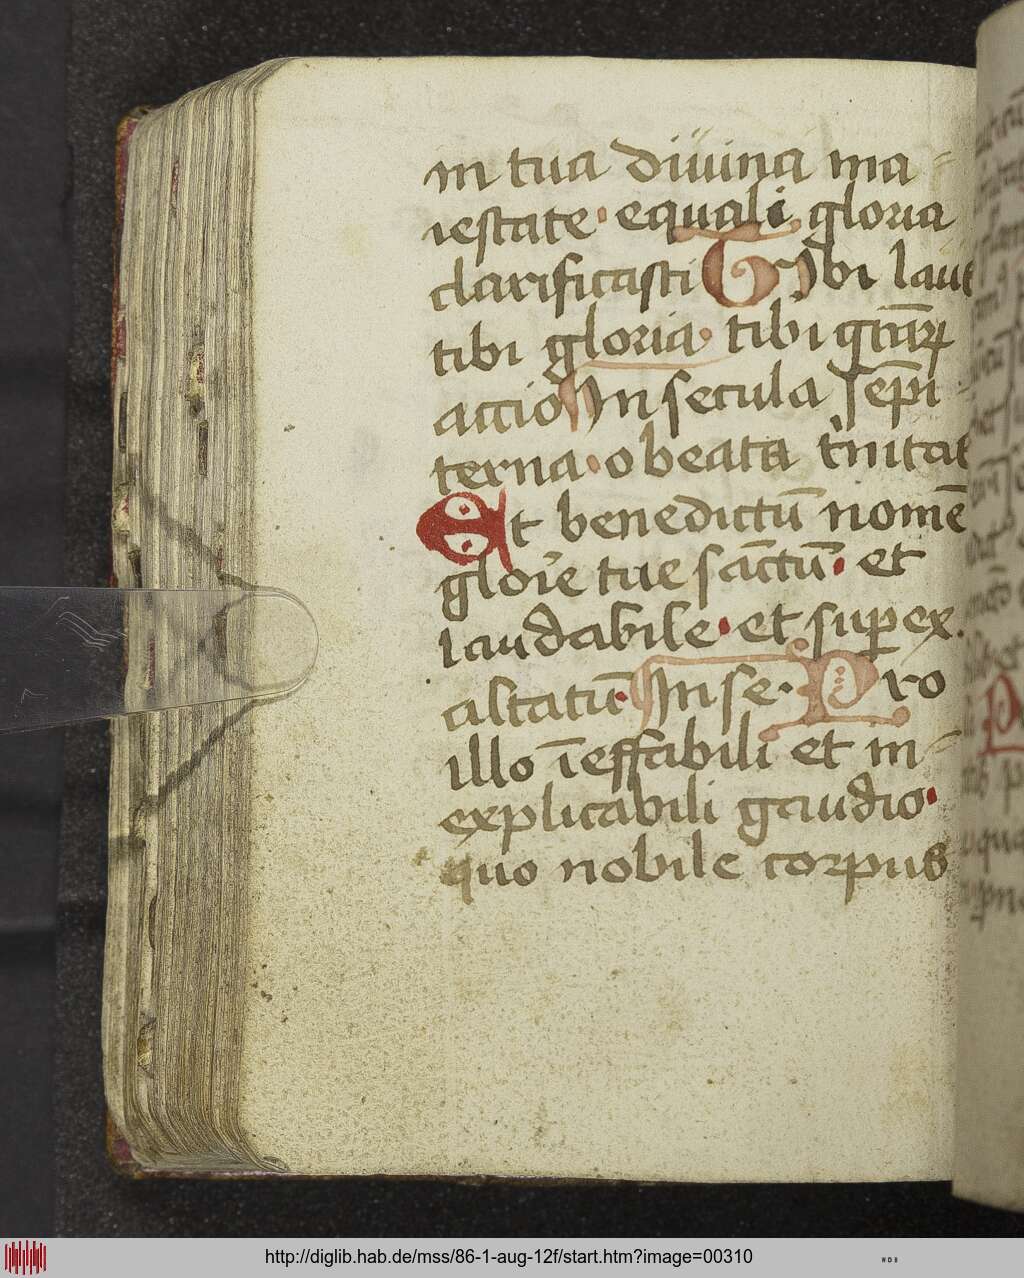 in tua diuina ma-
iestate· equali gloria
clarificasti Tibi laus
tibi gloria· tibi gr̄arꝝ
accio In secula sēpi-
terna· o beata t'nitas
Et benedictū nomē
glor̄ie tue sāctū· et
laudabile· et suꝑ ex.
altatū· In se· Pro
illo īeffabili et in-
explicabili gaudio·
quo nobile corpus
http://diglib.hab.de/mss/86-1-aug-12f/start.htm?image=00310